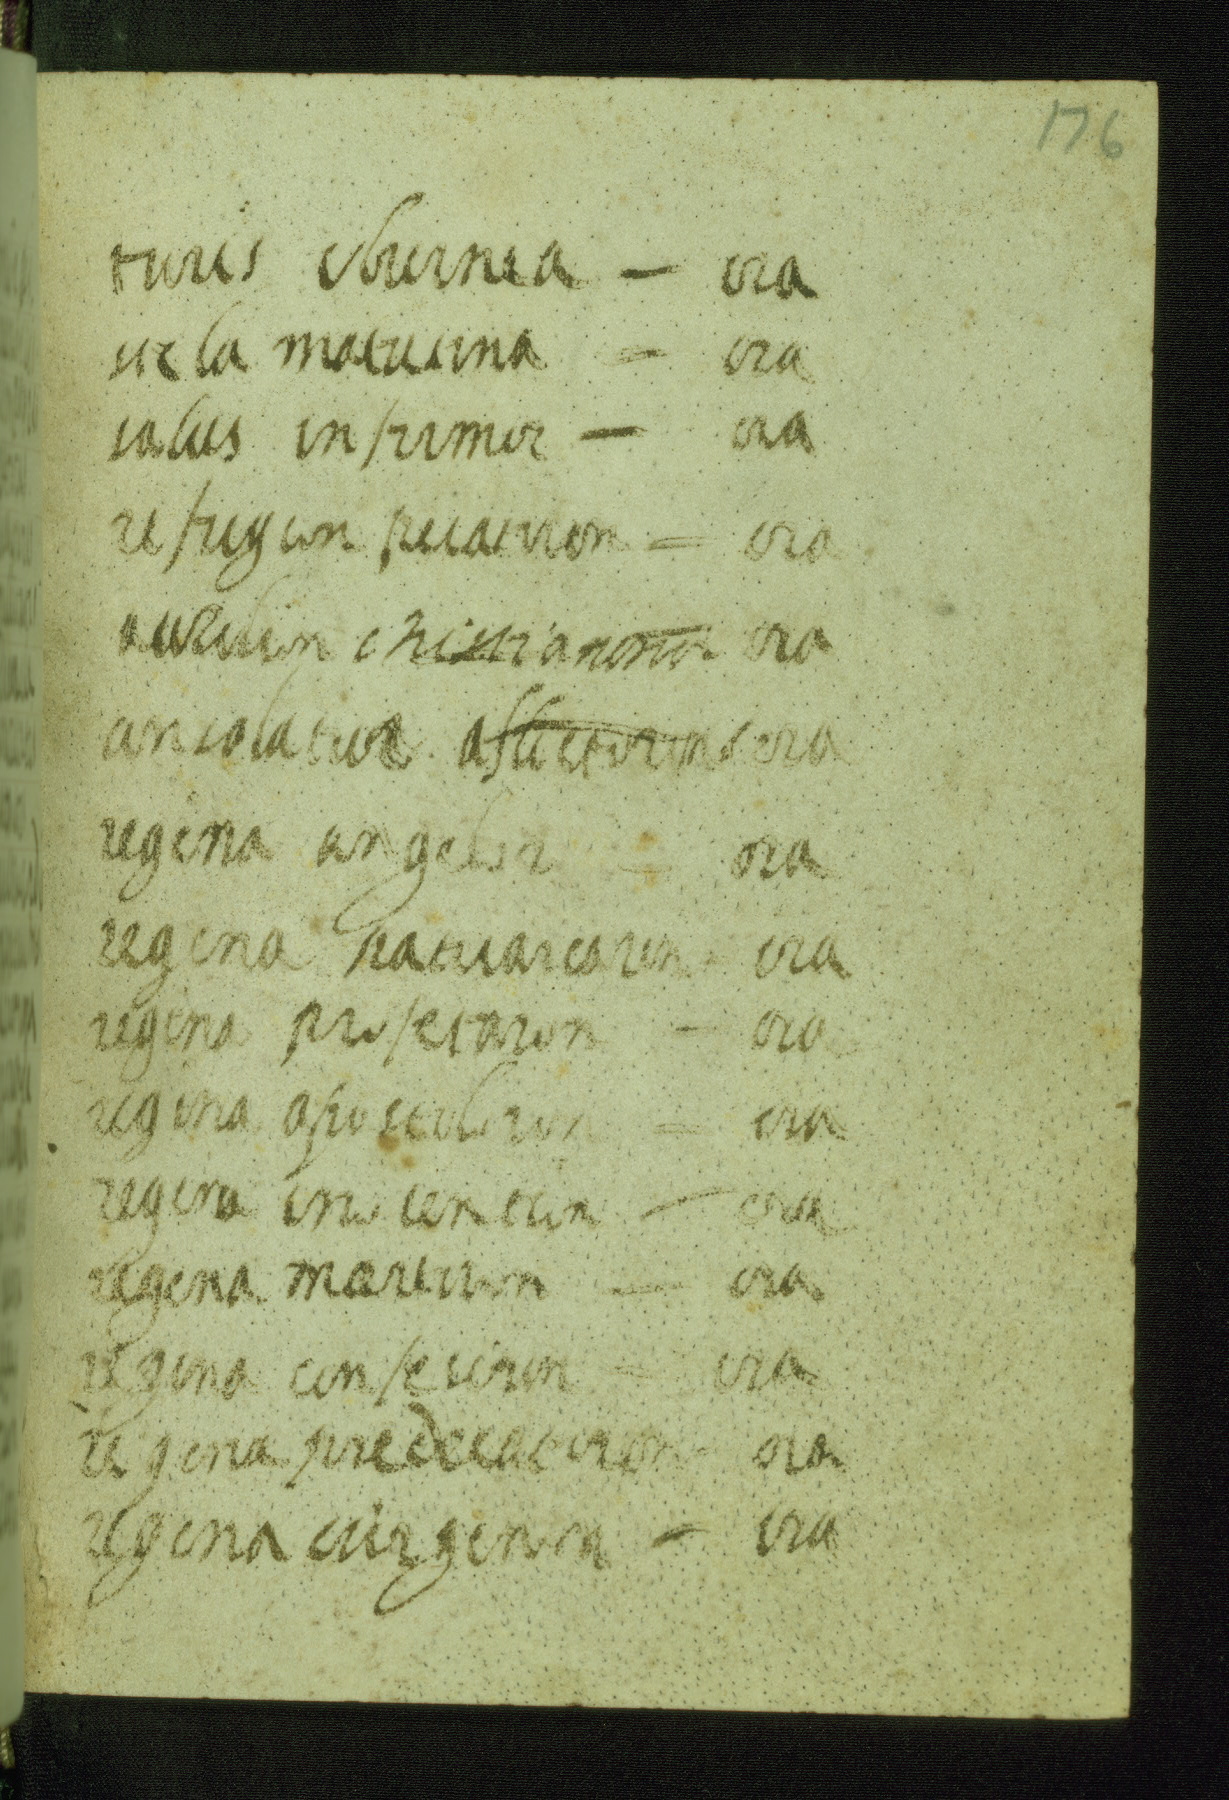 176
turis eburnea — ora
stela matutina = ora
salus infirmor — ora
refugiun pecatoron = ora
auxiliun christianoron ora
consolatior aflictorun ora
regina angelor = ora
regina patriarcarun ora
regina profetaron - ora
regina apostolorun = ora
regina inocentiun — ora
regina martirun = ora
regina confesoron - ora
regina predecatoron ora
regina virginun - ora